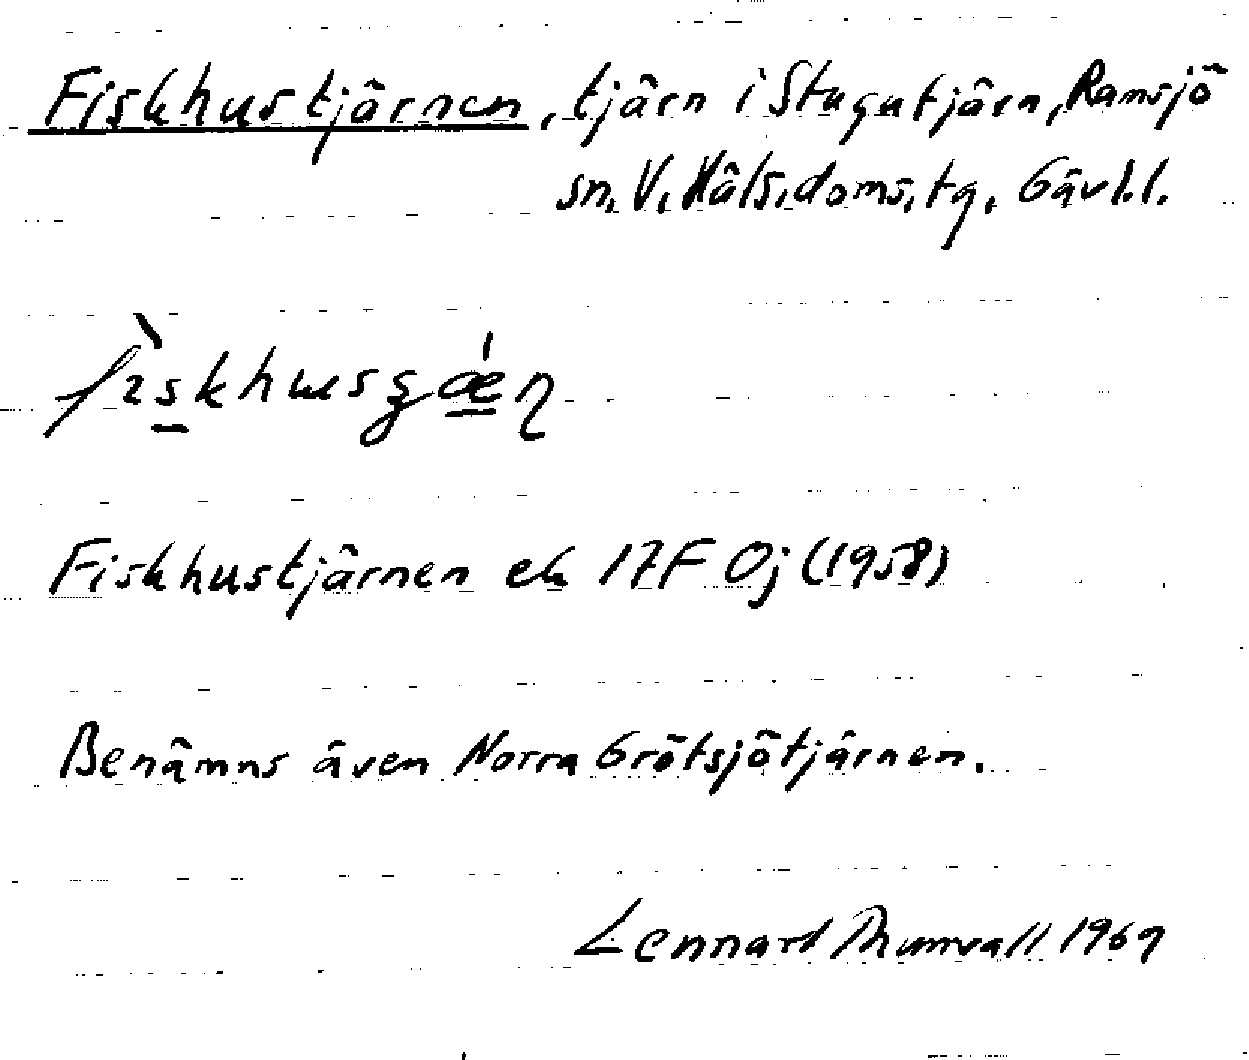 Fiskhustjärnen, tjärn i Stugutjärn, Ramsjö
sn. V. Häls. doms. tg. Gävl. l.
Fiskhustjärnen ek 17F 0j (1958)
Benämns även Norra Grötsjötjärnen.
Lennart 1969